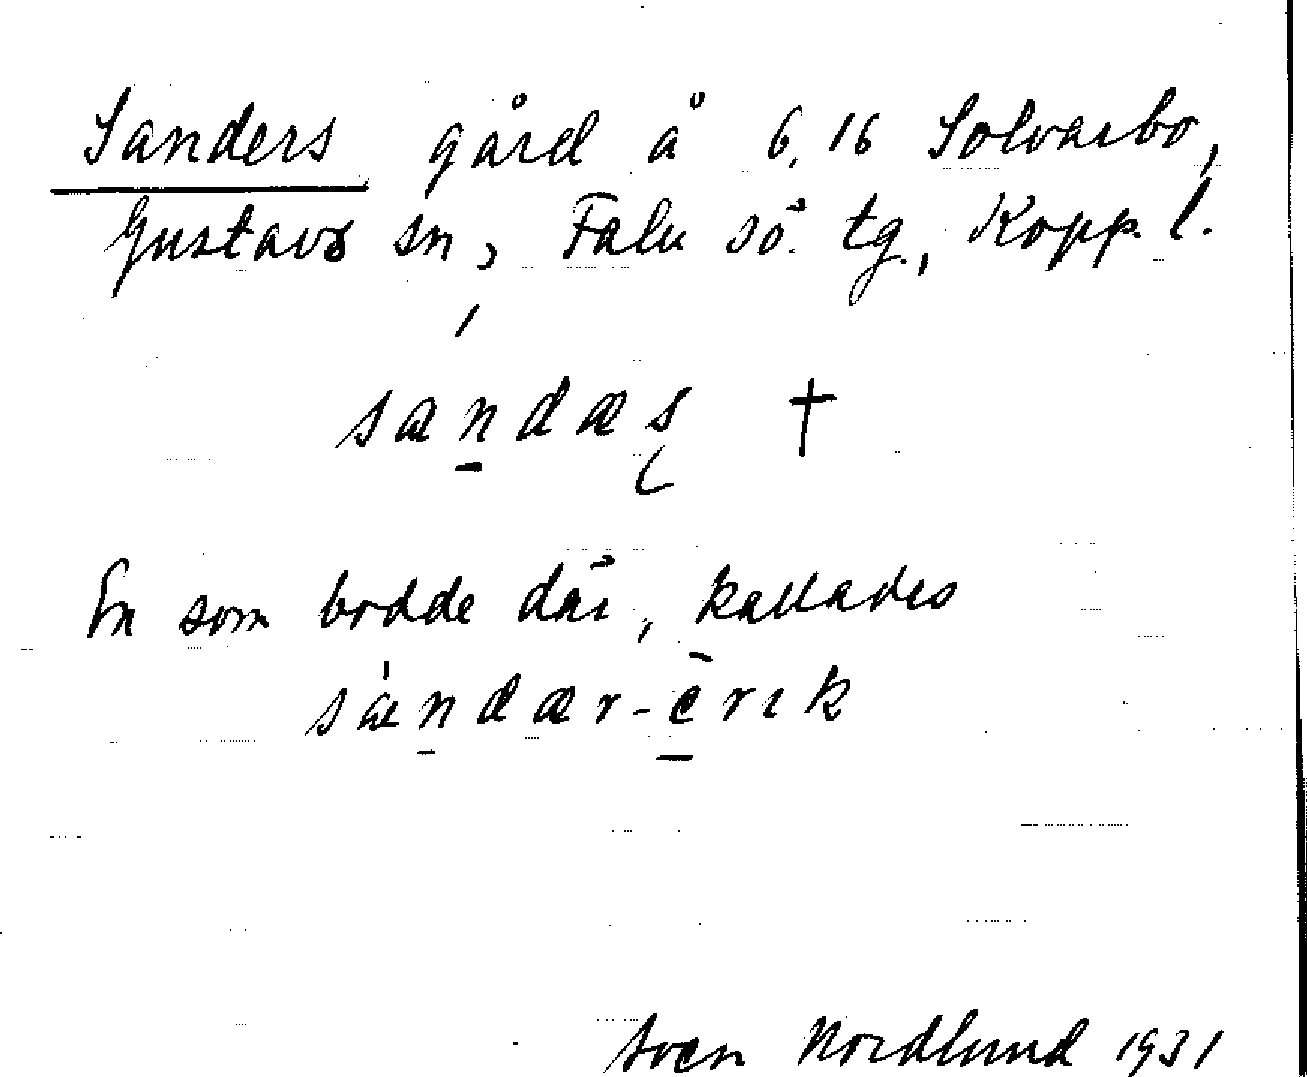 Sanders gård å 6,16 Solvarbo,
Gustavs sn, Falu sö. tg., Kopp. l.
sandæs †
En som bodde där, kallades
sandær-erik
Sven Nordlund 1931